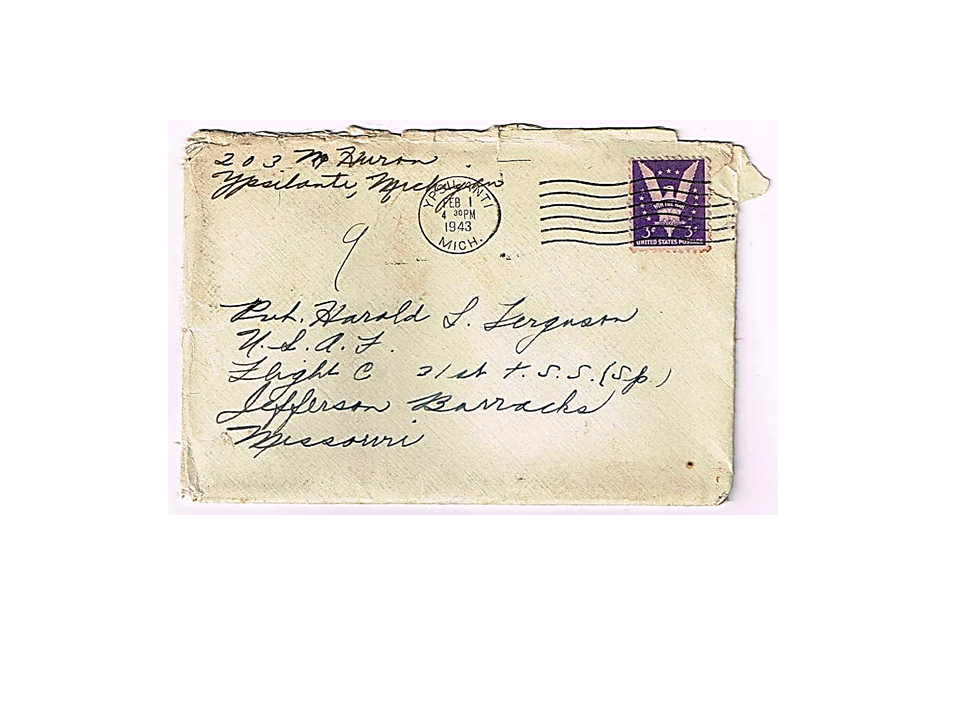 203 N Huron
Ypsilanti, Michigan
YPSILANTI
FEB 1
4 30PM
1943
MICH.
WIN THE WAR
3¢ 3¢
UNITED STATES POSTAGE
9
Pvt. Harold L. Ferguson
U.S.A.F.
Flight C 21st T.S.S. (Sp.)
Jefferson Barracks
Missouri